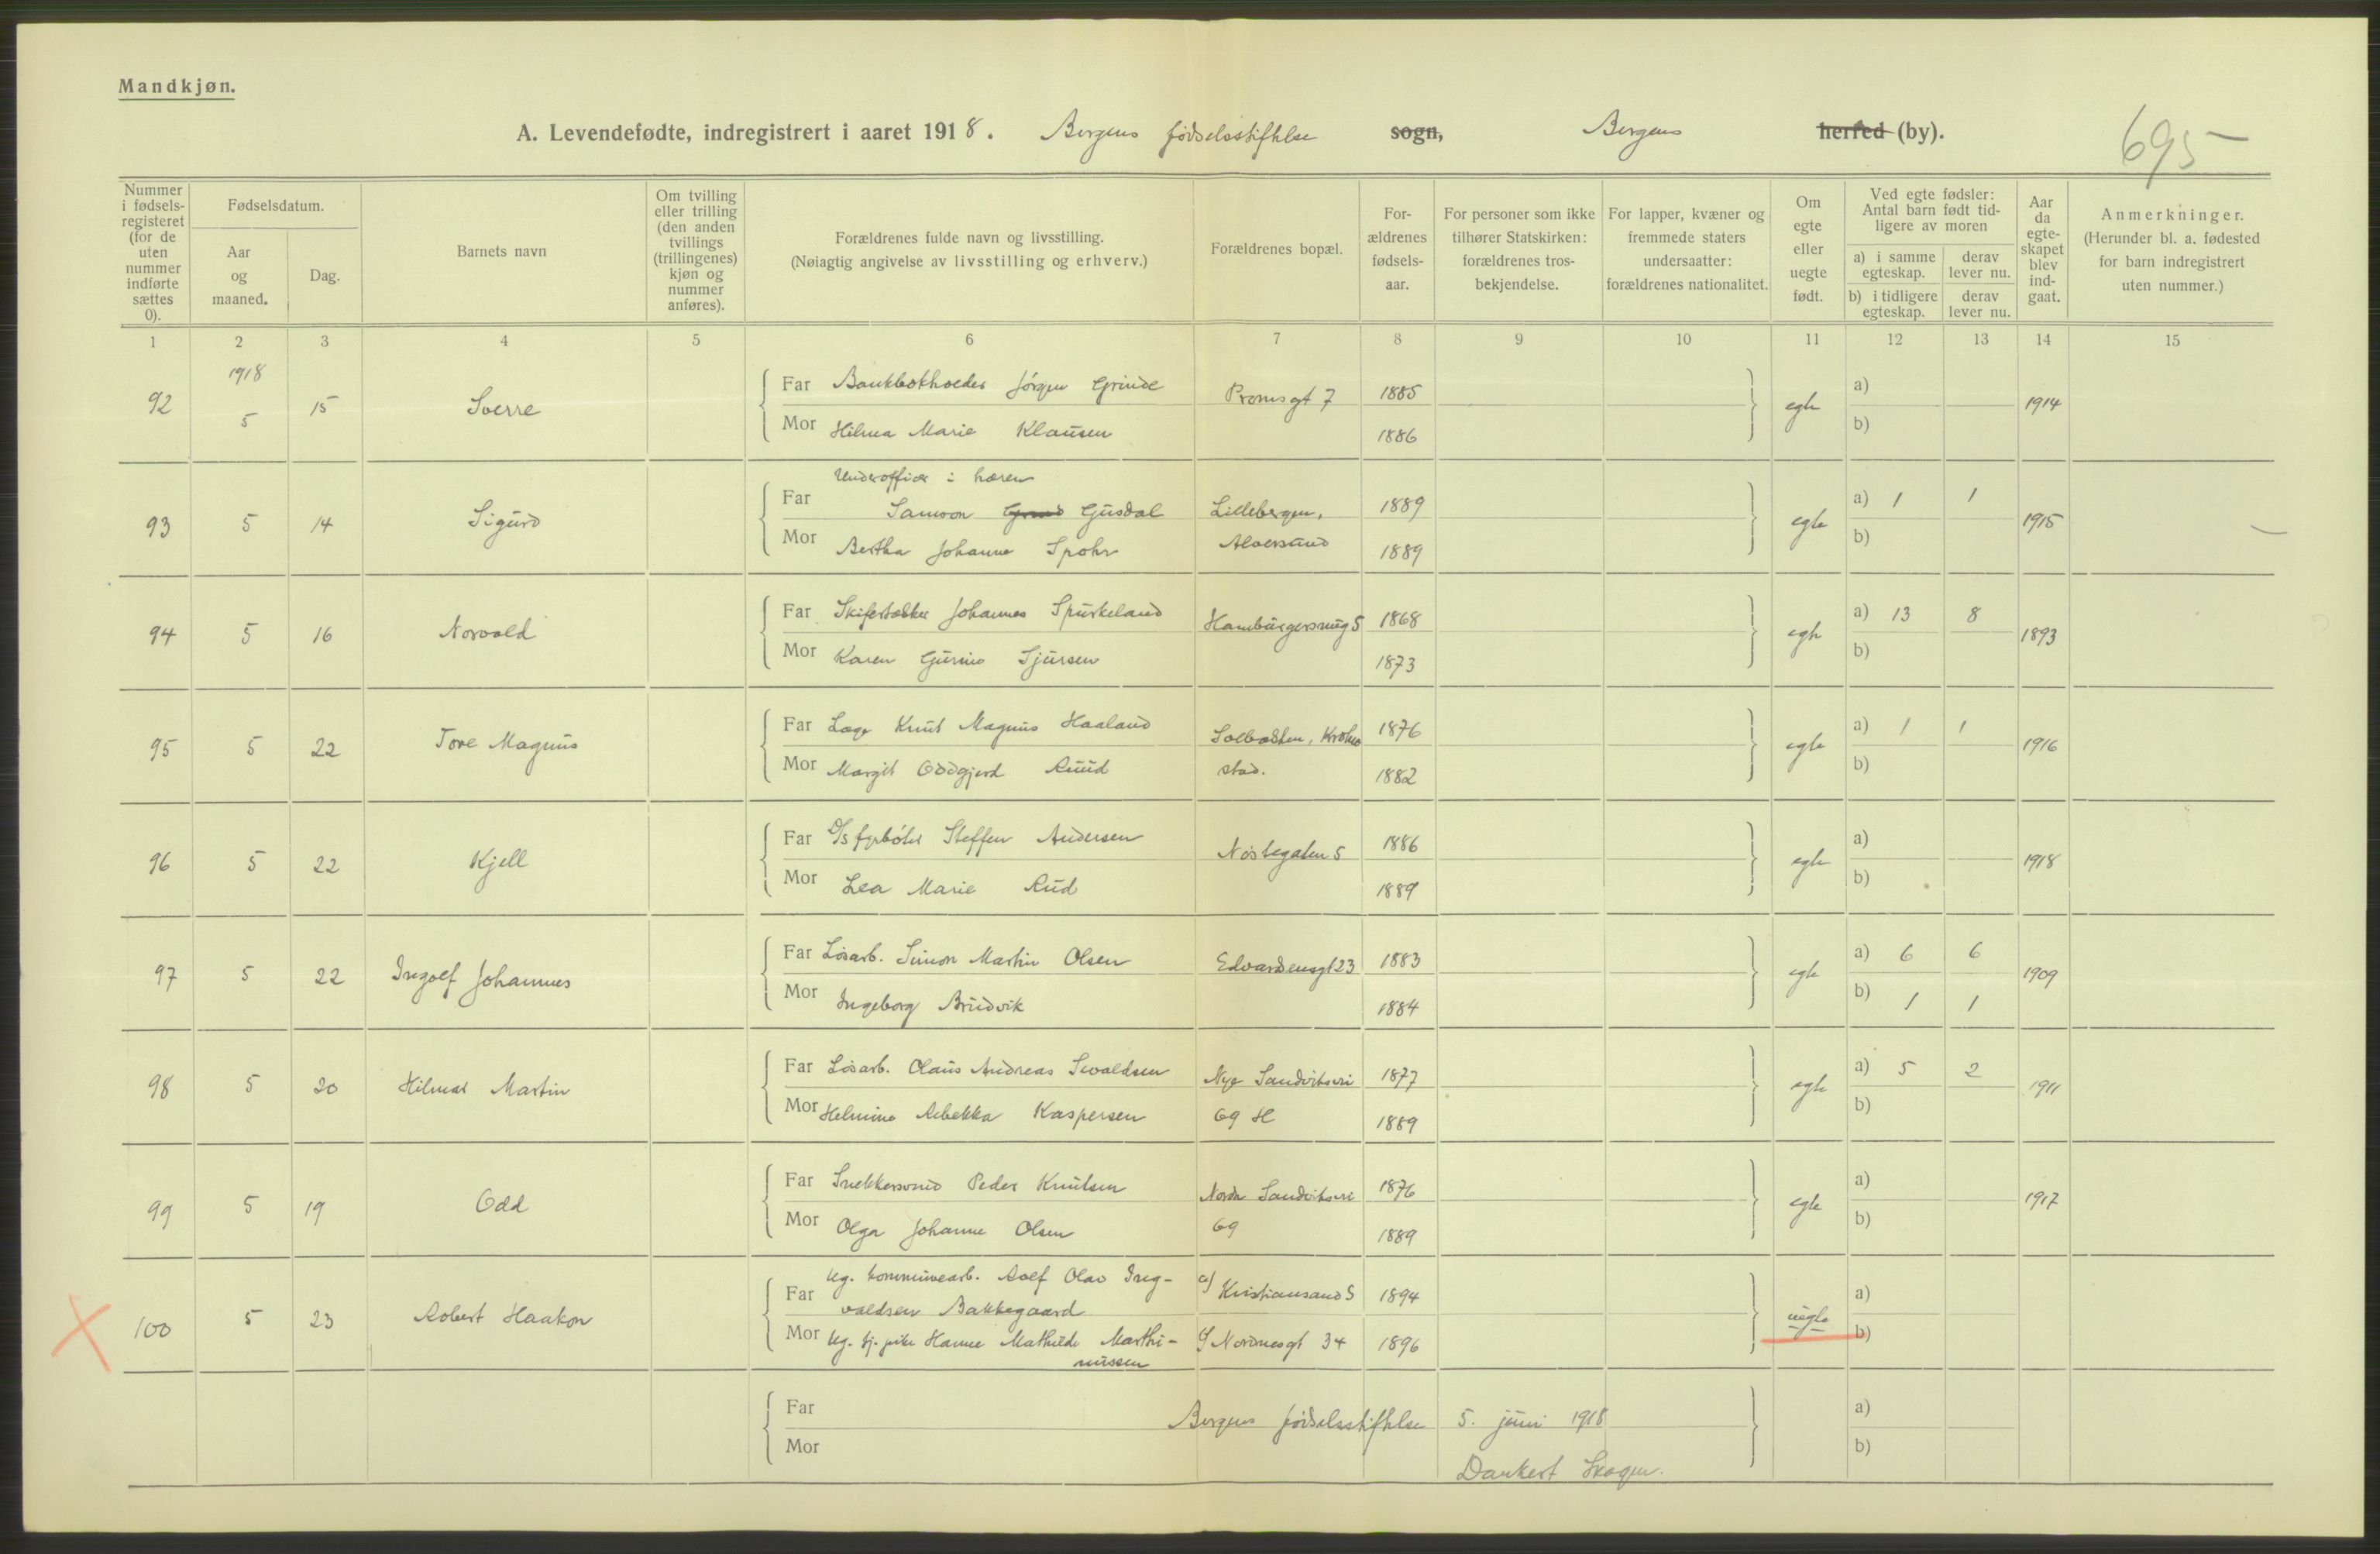 Mandkjøn.
A. Levendefødte, indregistrert i aaret 1918. Bergens fødselsstiftelse sogn, Bergens herred (by). 695
Nummer i fødselsregisteret (for de uten nummer indførte sættes 0).
Fødselsdatum.
Aar og maaned.
Dag.
Barnets navn
Om tvilling eller trilling (den anden tvillings (trillingenes) kjøn og nummer anføres).
Forældrenes fulde navn og livsstilling.
(Nøiagtig angivelse av livsstilling og erhverv.)
Forældrenes bopæl.
Forældrenes fødselsaar.
For personer som ikke tilhører Statskirken: forældrenes trosbekjendelse.
For lapper, kvæner og fremmede staters undersaatter: forældrenes nationalitet.
Om egte eller uegte født.
Ved egte fødsler: Antal barn født tidligere av moren
a) i samme egteskap.
derav lever nu.
b) i tidligere egteskap.
derav lever nu.
Aar da egteskapet blev indgaat.
Anmerkninger.
(Herunder bl. a. fødested for barn indregistrert uten nummer.)
1 2 3 4 5 6 7 8 9 10 11 12 13 14 15
1918
92 5 15 Sverre
Far Bankbokholder Jørgen Grinde Promsgt 7 1885 egte a) 1914
Mor Hilma Marie Klausen 1886 b)
93 5 14 Sigurd
Underofficer i hæren
Far Samson Gusdal Lillebergen, 1889 egte a) 1 1 1915
Mor Bertha Johanne Spohr Alversund 1889 b)
94 5 16 Norvald
Far Skifertækker Johannes Spurkeland Hamburgersmug 5 1868 egte a) 13 8 1893
Mor Karen Gurine Sjursen 1873 b)
95 5 22 Tore Magnus
Far Læge Knut Magnus Haaland 1876 egte a) 1 1 1916
Mor Margit Oddgjerd Ruud stad. 1882 b)
96 5 22 Kjell
Far D/s fyrbøter Steffen Andersen Nøstegaten 5 1886 egte a) 1918
Mor Lea Marie Rud 1889 b)
97 5 22 Ingolf Johannes
Far Løsarb. Simon Martin Olsen Edvardsensgt 23 1883 egte a) 6 6 1909
Mor Ingeborg Brudvik 1884 b) 1 1
98 5 20 Hilmar Martin
Far Løsarb. Olaus Andreas Sivaldsen Nye Sandviksvei 1877 egte a) 5 2 1911
Mor Helmine Rebekka Kaspersen 69 H 1889 b)
99 5 19 Odd
Far Snekkersvend Peder Knutsen Nordre Sandviksvei 1876 egte a) 1917
Mor Olga Johanne Olsen 69 1889 b)
100 5 23 Robert Haakon
Far Ug. kommunearb. Adolf Olav Ing- a) Kristiansand S 1894 uegte a)
valdsen Bakkegaard
Mor Ug. tj. pike Hanne Mathilde Marthi- b) Nordnesgt 34 1896 b)
nussen
Far Bergens fødselsstiftelse 5. juni 1918 a)
Mor b)
Dankert Skagen.